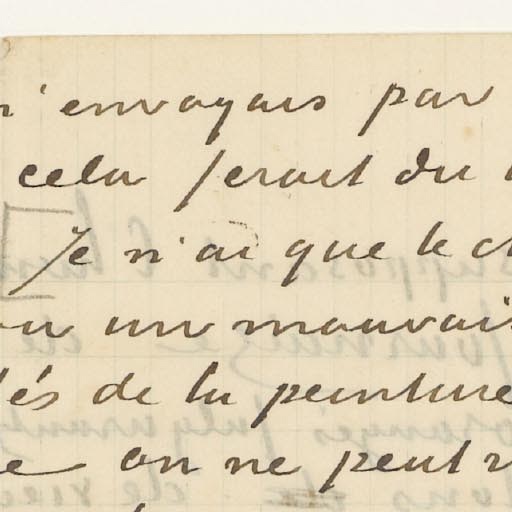 n'envoyais pas
cela serait du
Je n'ai que le ch
ou un mauvais
lés de la peinture
e on ne peut